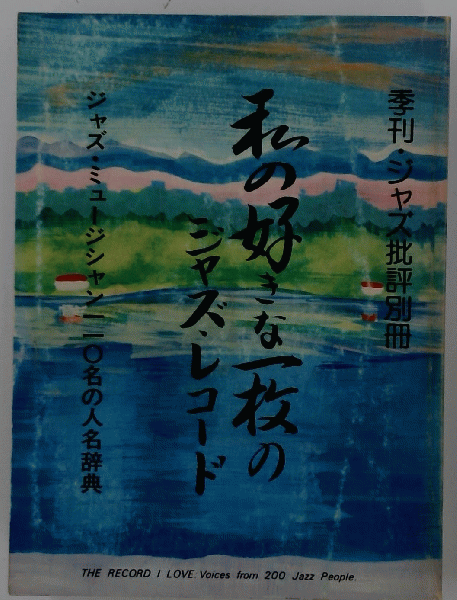 季刊・ジャズ批評別冊
私の好きな一枚の
ジャズ・レコード
ジャズ・ミュージシャン一一〇名の人名辞典
THE RECORD I LOVE. Voices from 200 Jazz People.